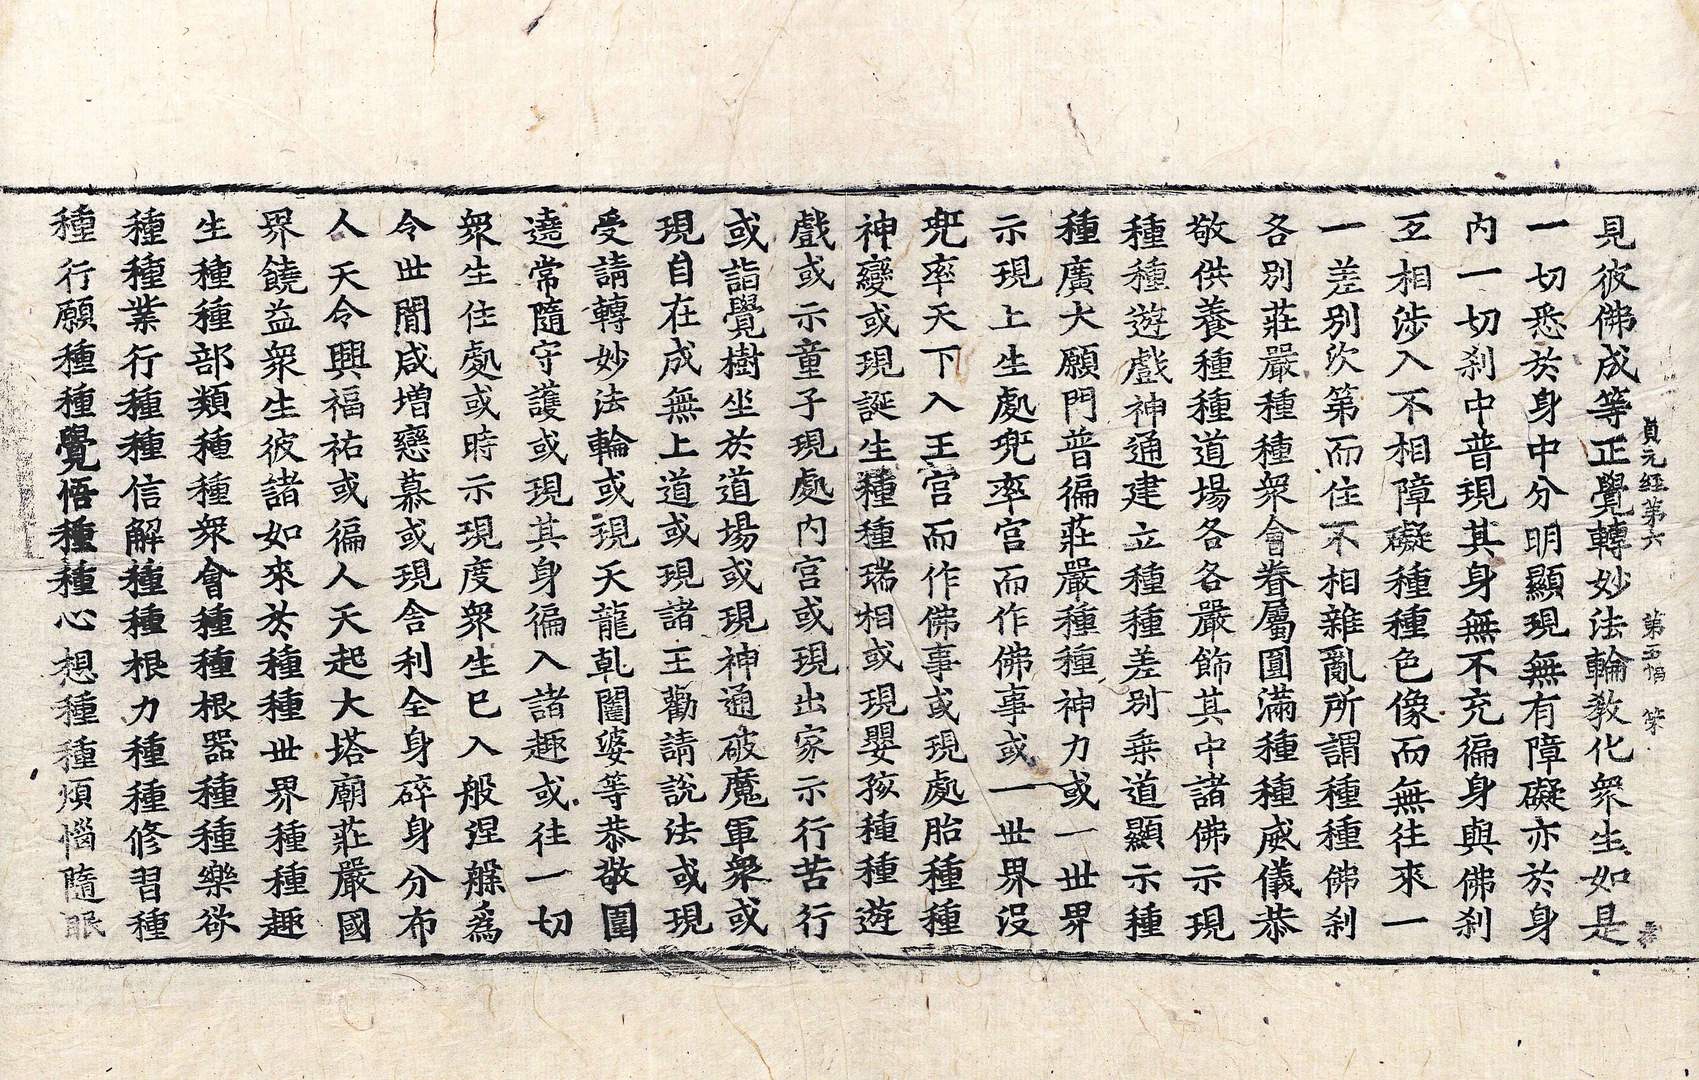 見彼佛成等正覺轉妙法輪教化衆生如是
貞元經第六 第五幅
一切悉於身中分明顯現無有障礙亦於身
内一切刹中普現其身無不充徧身與佛刹
互相涉入不相障礙種種色像而無往來一
一差別次第而住不相雜亂所謂種種佛刹
各別莊嚴種種衆會眷屬圓滿種種威儀恭
敬供養種種道場各各嚴飾其中諸佛示現
種種遊戲神通建立種種差別乘道顯示種
種廣大願門普徧莊嚴種種神力或一世界
示現上生處兜率宮而作佛事或一世界沒
兜率天下入王宮而作佛事或現處胎種種
神變或現誕生種種瑞相或現嬰孩種種遊
戲或示童子現處内宮或現出家示行苦行
或詣覺樹坐於道場或現神通破魔軍衆或
現自在成無上道或現諸王勸請說法或現
受請轉妙法輪或現天龍乹闥婆等恭敬圍
遶常隨守護或現其身徧入諸趣或往一切
衆生住處或時示現度衆生已入般涅槃爲
令世間咸增戀慕或現舍利全身碎身分布
人天令興福祐或徧人天起大塔廟莊嚴國
界饒益衆生彼諸如來於種種世界種種趣
生種種部類種種衆會種種根器種種樂欲
種種業行種種信解種種根力種種修習種
種行願種種覺悟種種心想種種煩惱隨眠